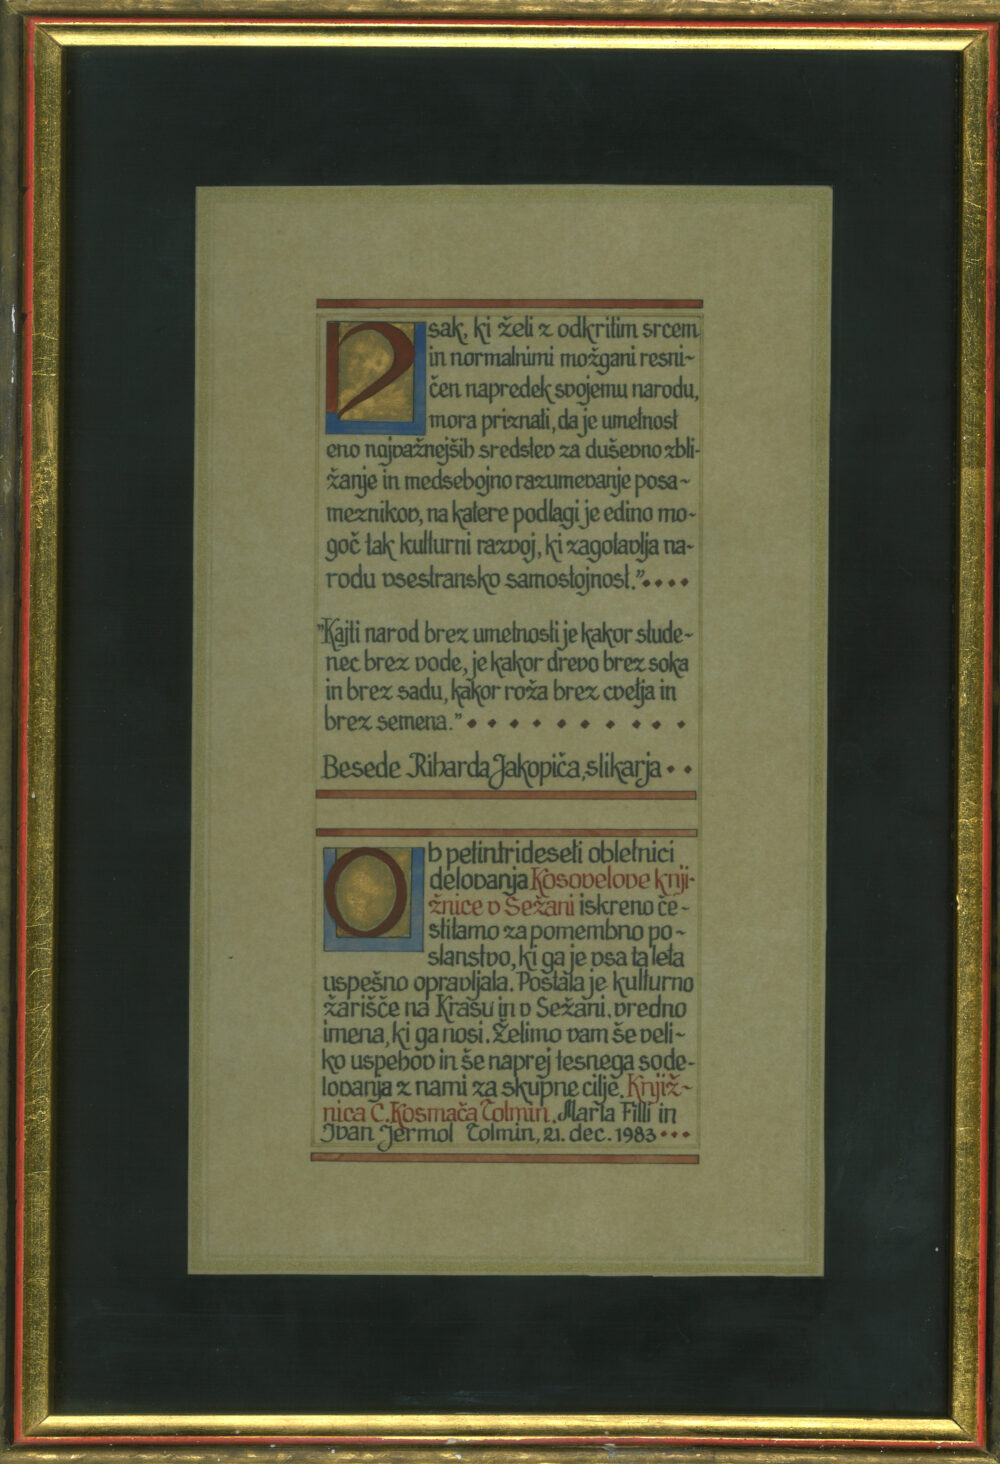 Vsak, ki želi z odkritim srcem
in normalnimi možgani resni-
čen napredek svojemu narodu,
mora priznati, da je umetnost
eno najvažnejših sredstev za duševno zbli-
žanje in medsebojno razumevanje posa-
meznikov, na katere podlagi je edino mo-
goč tak kulturni razvoj, ki zagotavlja na-
rodu vsestransko samostojnost."....
"Kajti narod brez umetnosti je kakor stude-
nec brez vode, je kakor drevo brez soka
in brez sadu, kakor roža brez cvetja in
brez semena." . . . . . . . . . .
Besede Riharda Jakopiča, slikarja . .
Ob petintrideseti obletnici
delovanja Kosovelove knji-
žnice v Sežani iskreno če-
stitamo za pomembno po-
slanstvo, ki ga je vsa ta leta
uspešno opravljala. Postala je kulturno
žarišče na Krasu in v Sežani, vredno
imena, ki ga nosi. Želimo vam še veli-
ko uspehov in še naprej tesnega sode-
lovanja z nami za skupne cilje. Knjiž-
nica C. Kosmača Tolmin. Marta Filli in
Ivan Jermol Tolmin, 21. dec. 1983...